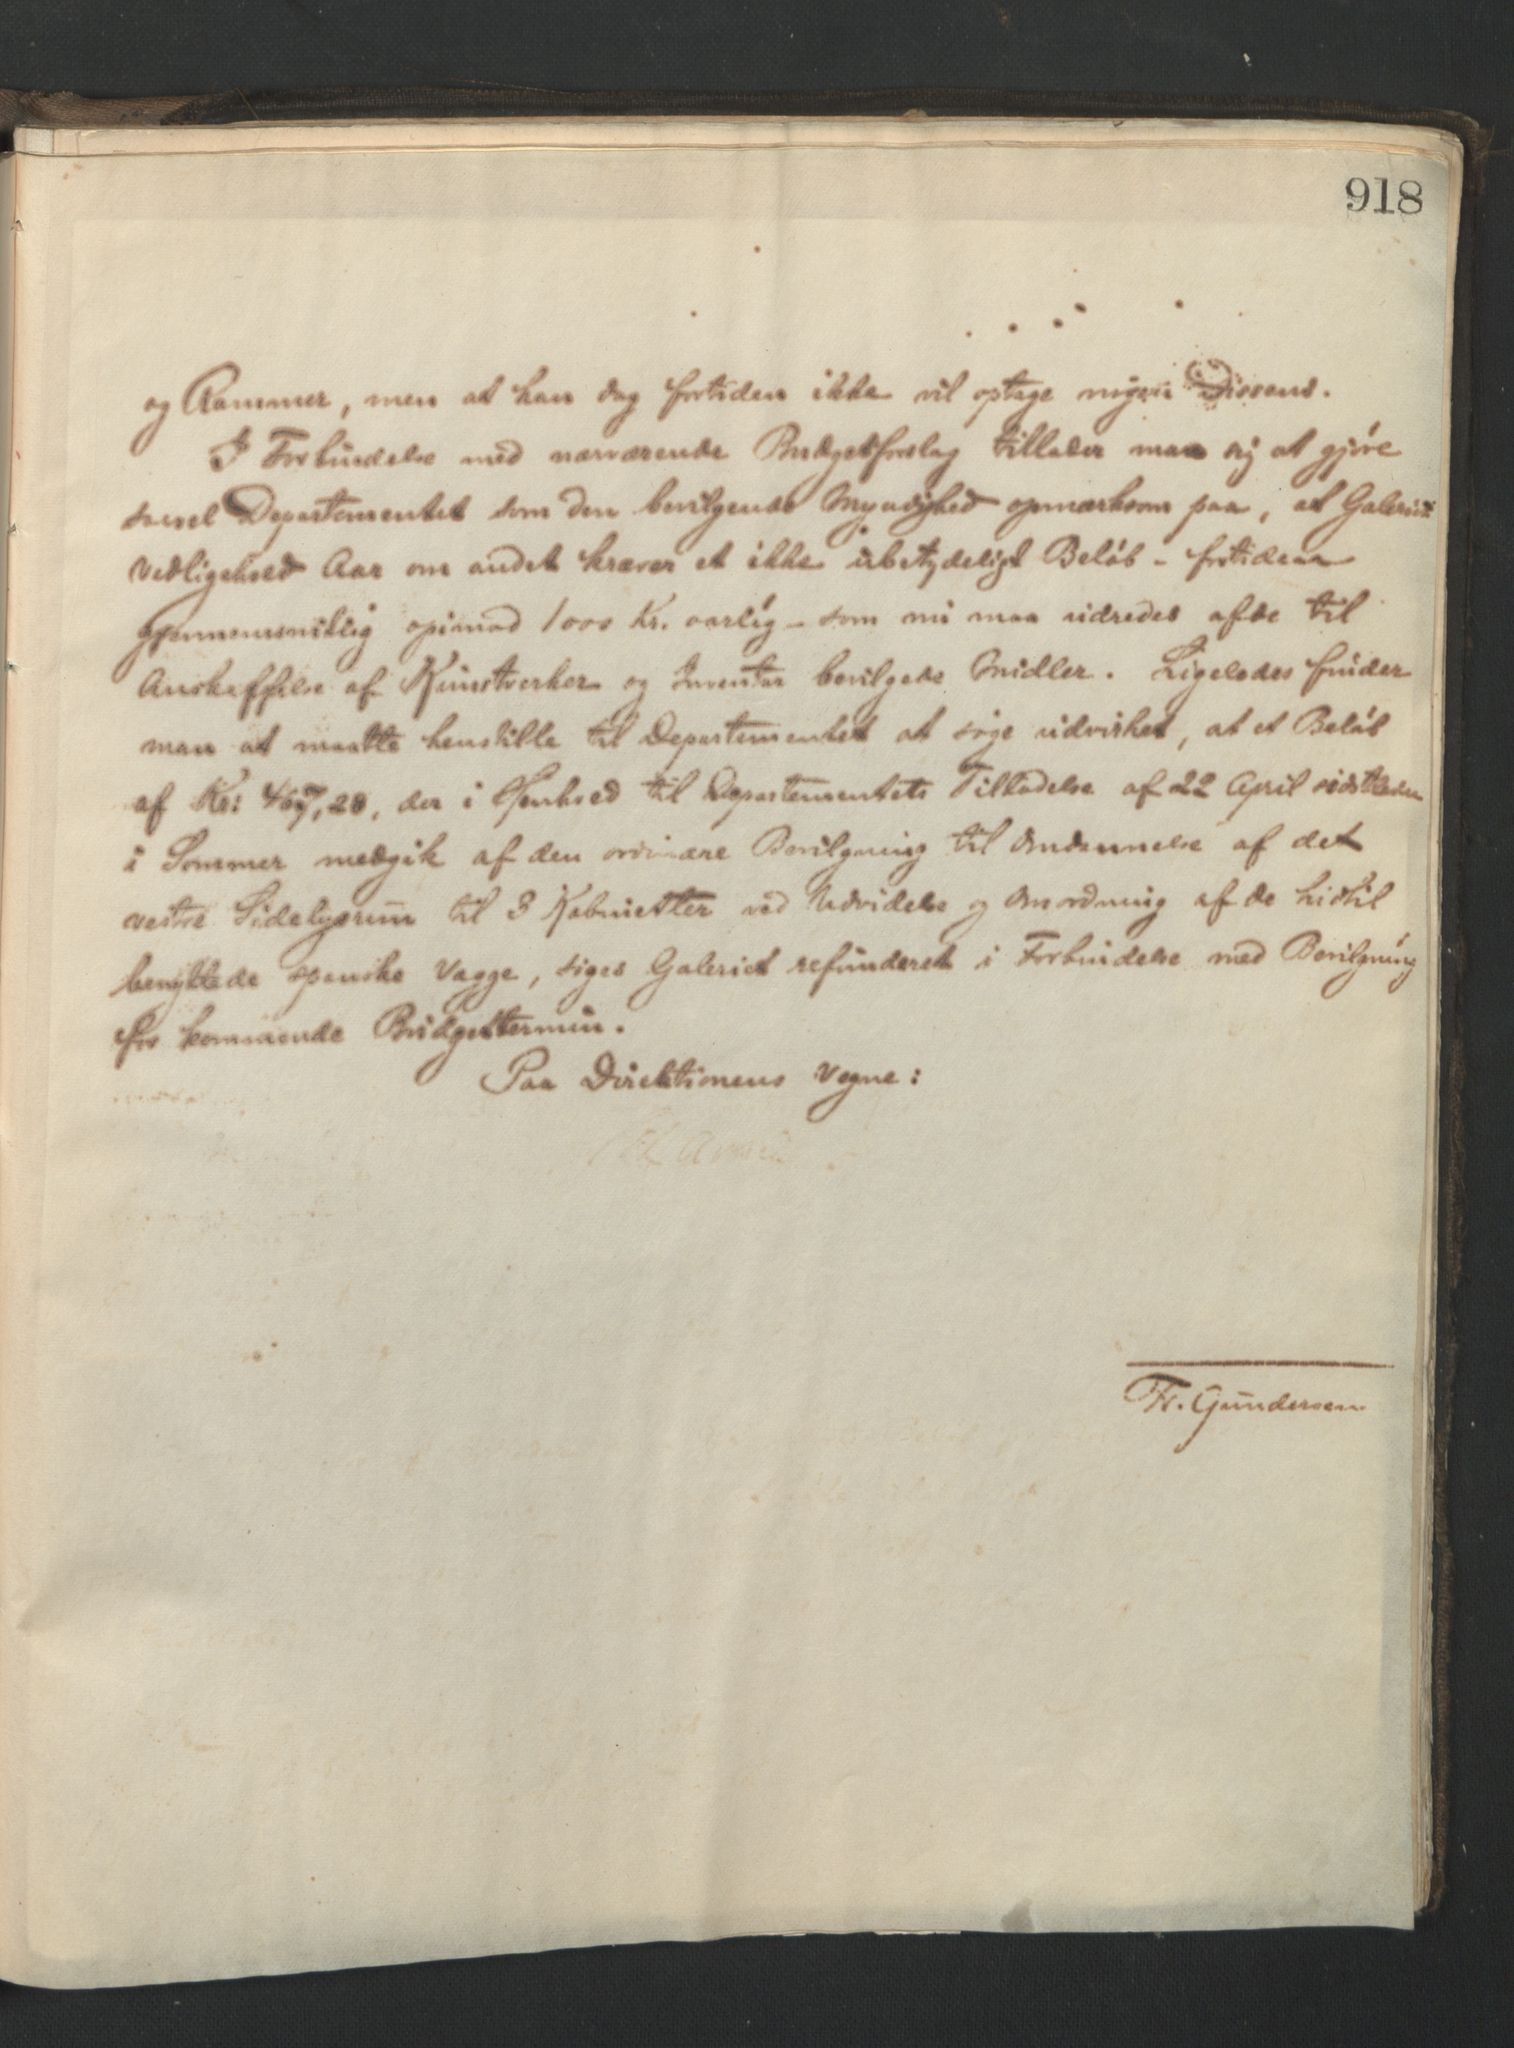 918
og Rammer, men at han dog fortiden ikke vil optage nogen Dissens.
I Forbindelse med nærværende Budgetforslag tillader man sig at gjöre
saavel Departementet som den bevilgende Myndighed opmærksom paa, at Galeriets
Vedligehold Aar om andet kræver et ikke ubetydeligt Belöb - fortiden
gjennemsnitlig opimod 1000 Kr. aarlig - som nu maa udredes af de til
Anskaffelse af Kunstverker og Inventar bevilgede Midler. Ligeledes finder
man at maatte henstille til Departementet at söge udvirket, at et Belöb
af Kr: 467,28, der i Henhold til Departementets Tilladelse af 22 April sidstleden
i Sommer medgik af den ordinære Bevilgning til Omdannelse af det
vestre Sidelysrum til 3 Kabinetter ved Udvidelse og Omordning af de hidtil
benyttede spanske Vægge, söges Galeriet refunderet i Forbindelse med Bevilgning
for kommende Budgettermin.
Paa Direktionens Vegne:
Fr. Gundersen